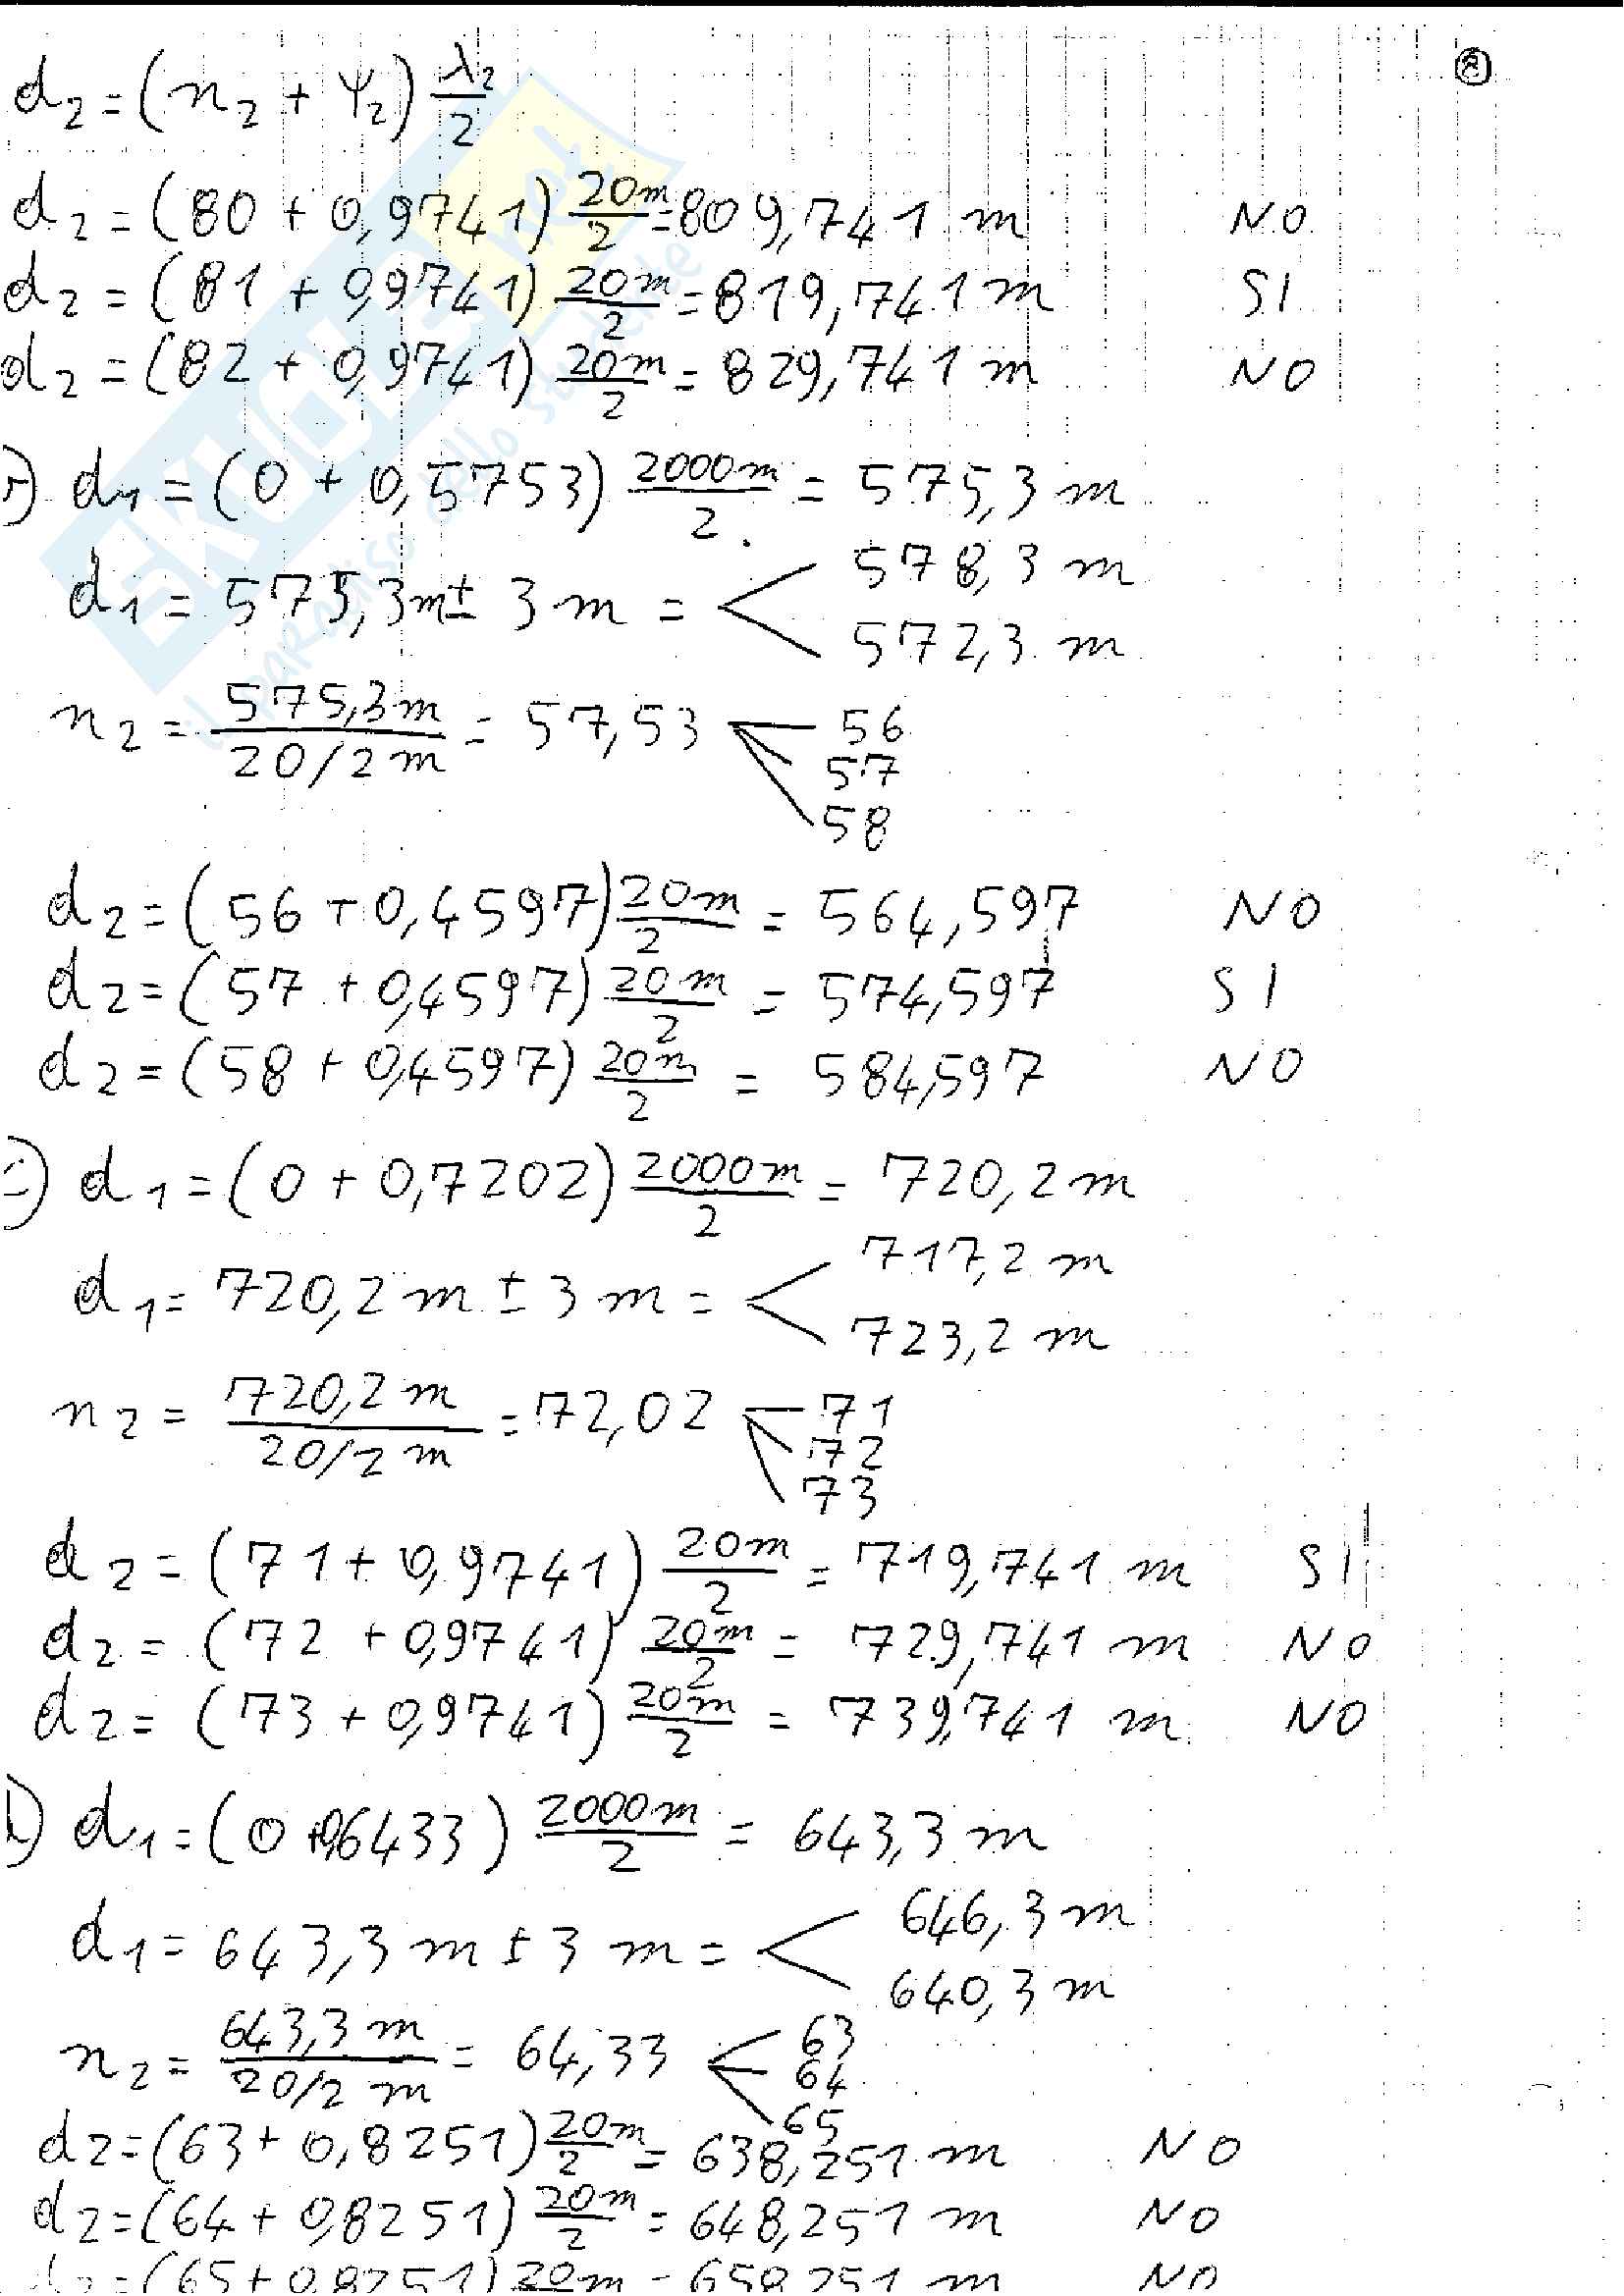 ②
d₂ = (n₂ + Ψ₂) λ₂/2
d₂ = (80 + 0,9741) 20m/2 = 809,741 m NO
d₂ = (81 + 0,9741) 20m/2 = 819,741 m SI
d₂ = (82 + 0,9741) 20m/2 = 829,741 m NO
) d₁ = (0 + 0,5753) 2000m/2 = 575,3 m
578,3 m
d₁ = 575,3m ± 3 m =
572,3 m
n₂ = 575,3m / 20/2 m = 57,53 56
57
58
d₂ = (56 + 0,4597) 20m/2 = 564,597 NO
d₂ = (57 + 0,4597) 20m/2 = 574,597 SI
d₂ = (58 + 0,4597) 20m/2 = 584,597 NO
) d₁ = (0 + 0,7202) 2000m/2 = 720,2 m
717,2 m
d₁ = 720,2 m ± 3 m =
723,2 m
n₂ = 720,2 m / 20/2 m = 72,02 71
72
73
d₂ = (71 + 0,9741) 20m/2 = 719,741 m SI
d₂ = (72 + 0,9741) 20m/2 = 729,741 m NO
d₂ = (73 + 0,9741) 20m/2 = 739,741 m NO
) d₁ = (0+0,6433) 2000m/2 = 643,3 m
646,3 m
d₁ = 643,3 m ± 3 m =
640,3 m
n₂ = 643,3 m / 20/2 m = 64,33 63
64
65
d₂ = (63 + 0,8251) 20m/2 = 638,251 m NO
d₂ = (64 + 0,8251) 20m/2 = 648,251 m NO
d₂ = (65 + 0,8251) 20m = 658,251 m NO
SKUOLA.net
il paradiso dello studente